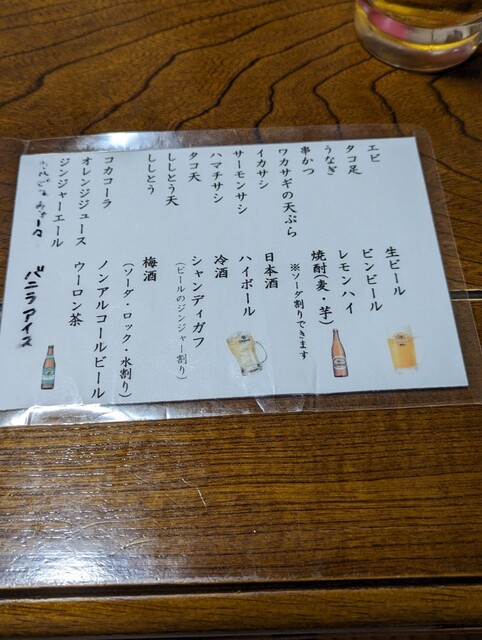 エビ
タコ足
うなぎ
串かつ
ワカサギの天ぷら
イカサシ
サーモンサシ
ハマチサシ
タコ天
ししとう天
ししとう
コカコーラ
オレンジジュース
ジンジャーエール
生ビール
ビンビール
レモンハイ
焼酎(麦・芋)
※ソーダ割りできます
日本酒
ハイボール
冷酒
シャンディガフ
(ビールのジンジャー割り)
梅酒
(ソーダ・ロック・水割り)
ノンアルコールビール
ウーロン茶
バニラアイス